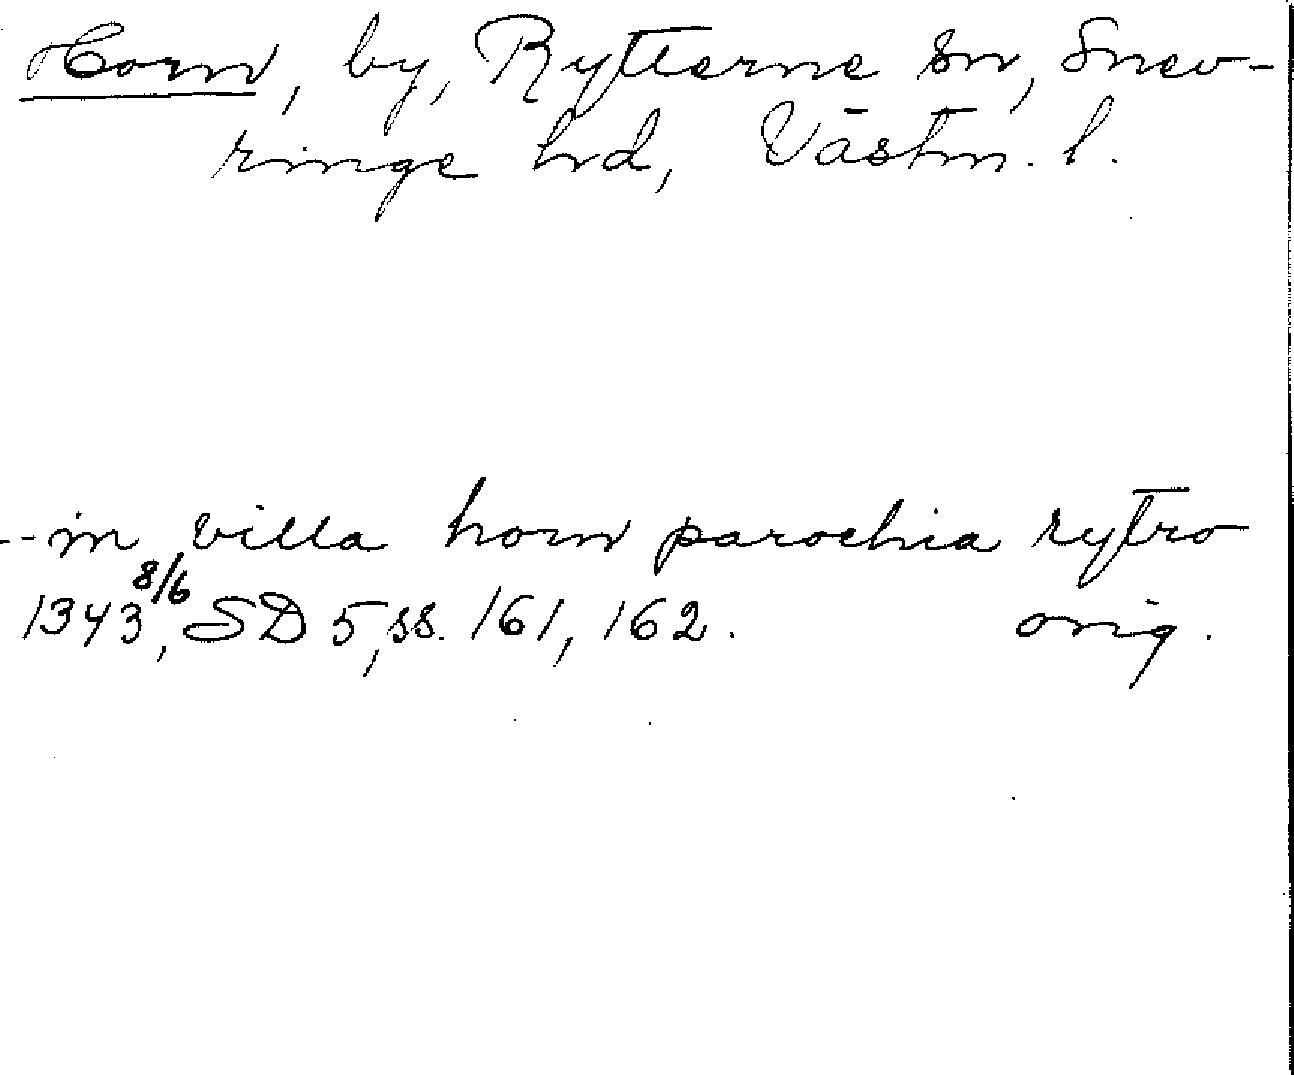 Horn, by, Rytterne sn, Snev-
ringe hd, Västm. l.
-- in villa horn parochia rytro
1343 8/6, SD 5, ss. 161, 162. orig.